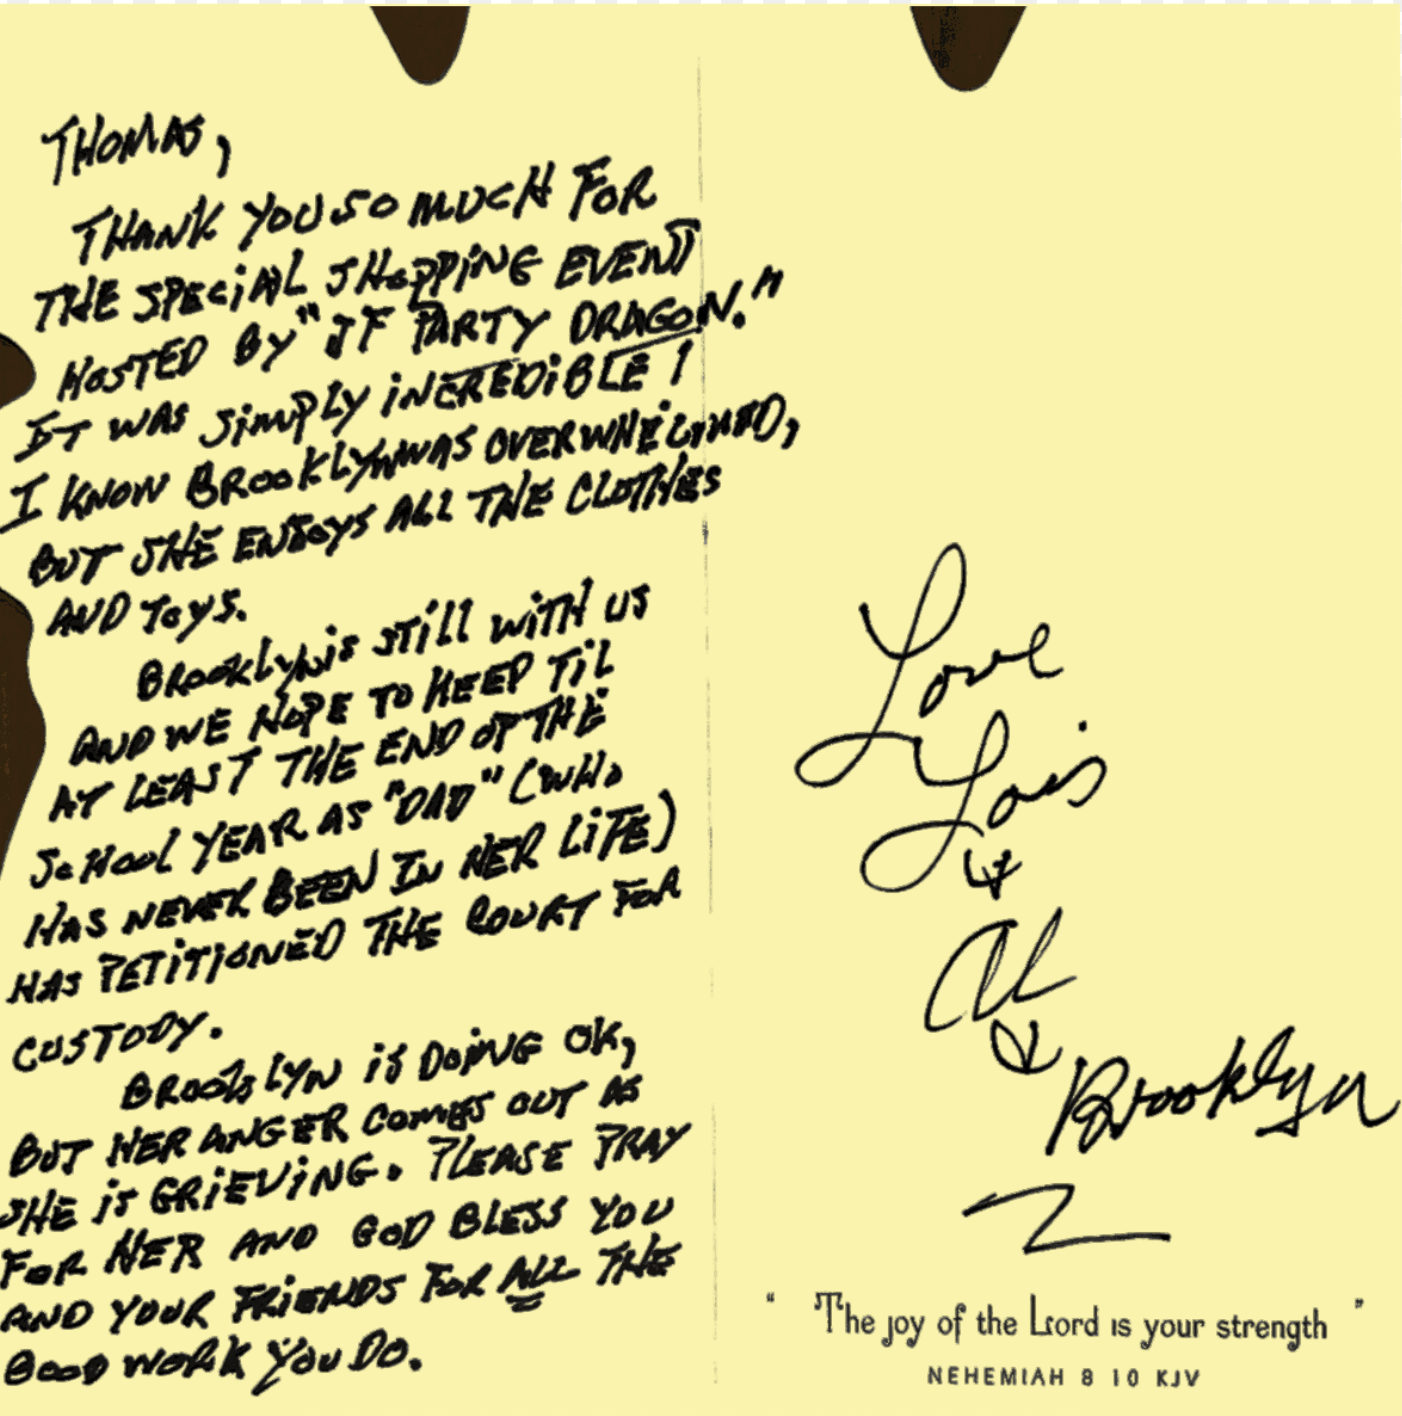 THOMAS,
THANK YOU SO MUCH FOR
THE SPECIAL SHOPPING EVENT
HOSTED BY "JF PARTY DRAGON."
IT WAS SIMPLY INCREDIBLE!
I KNOW BROOKLYN WAS OVERWHELMED,
BUT SHE ENJOYS ALL THE CLOTHES
AND TOYS.
BROOKLYN IS STILL WITH US
AND WE HOPE TO KEEP TIL
AT LEAST THE END OF THE
SCHOOL YEAR AS "DAD" (WHO
HAS NEVER BEEN IN HER LIFE)
HAS PETITIONED THE COURT FOR
CUSTODY.
BROOKLYN IS DOING OK,
BUT HER ANGER COMES OUT AS
SHE IS GRIEVING. PLEASE PRAY
FOR HER AND GOD BLESS YOU
AND YOUR FRIENDS FOR ALL THE
GOOD WORK YOU DO.
Love
Lois
&
Al
&
Brooklyn
"The joy of the Lord is your strength"
NEHEMIAH 8 10 KJV